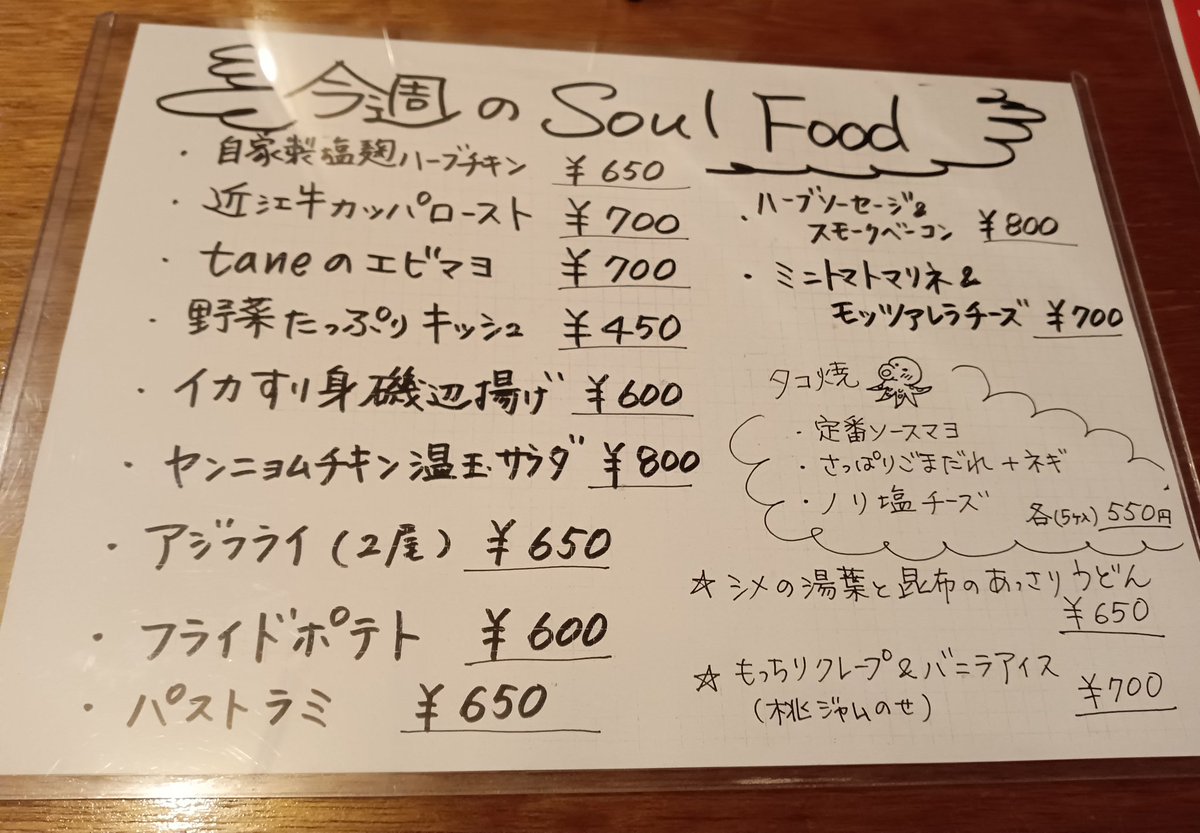 今週の Soul Food
・自家製塩麹ハーブチキン ¥650
・近江牛カッパロースト ¥700
・taneのエビマヨ ¥700
・野菜たっぷりキッシュ ¥450
・イカすり身磯辺揚げ ¥600
・ヤンニョムチキン温玉サラダ ¥800
・アジフライ(2尾) ¥650
・フライドポテト ¥600
・パストラミ ¥650
・ハーブソーセージ&
スモークベーコン ¥800
・ミニトマトマリネ&
モッツァレラチーズ ¥700
タコ焼
・定番ソースマヨ
・さっぱりごまだれ+ネギ
・ノリ塩チーズ
各(5ヶ入) 550円
☆シメの湯葉と昆布のあっさりうどん
¥650
☆もっちりクレープ&バニラアイス
(桃ジャムのせ) ¥700